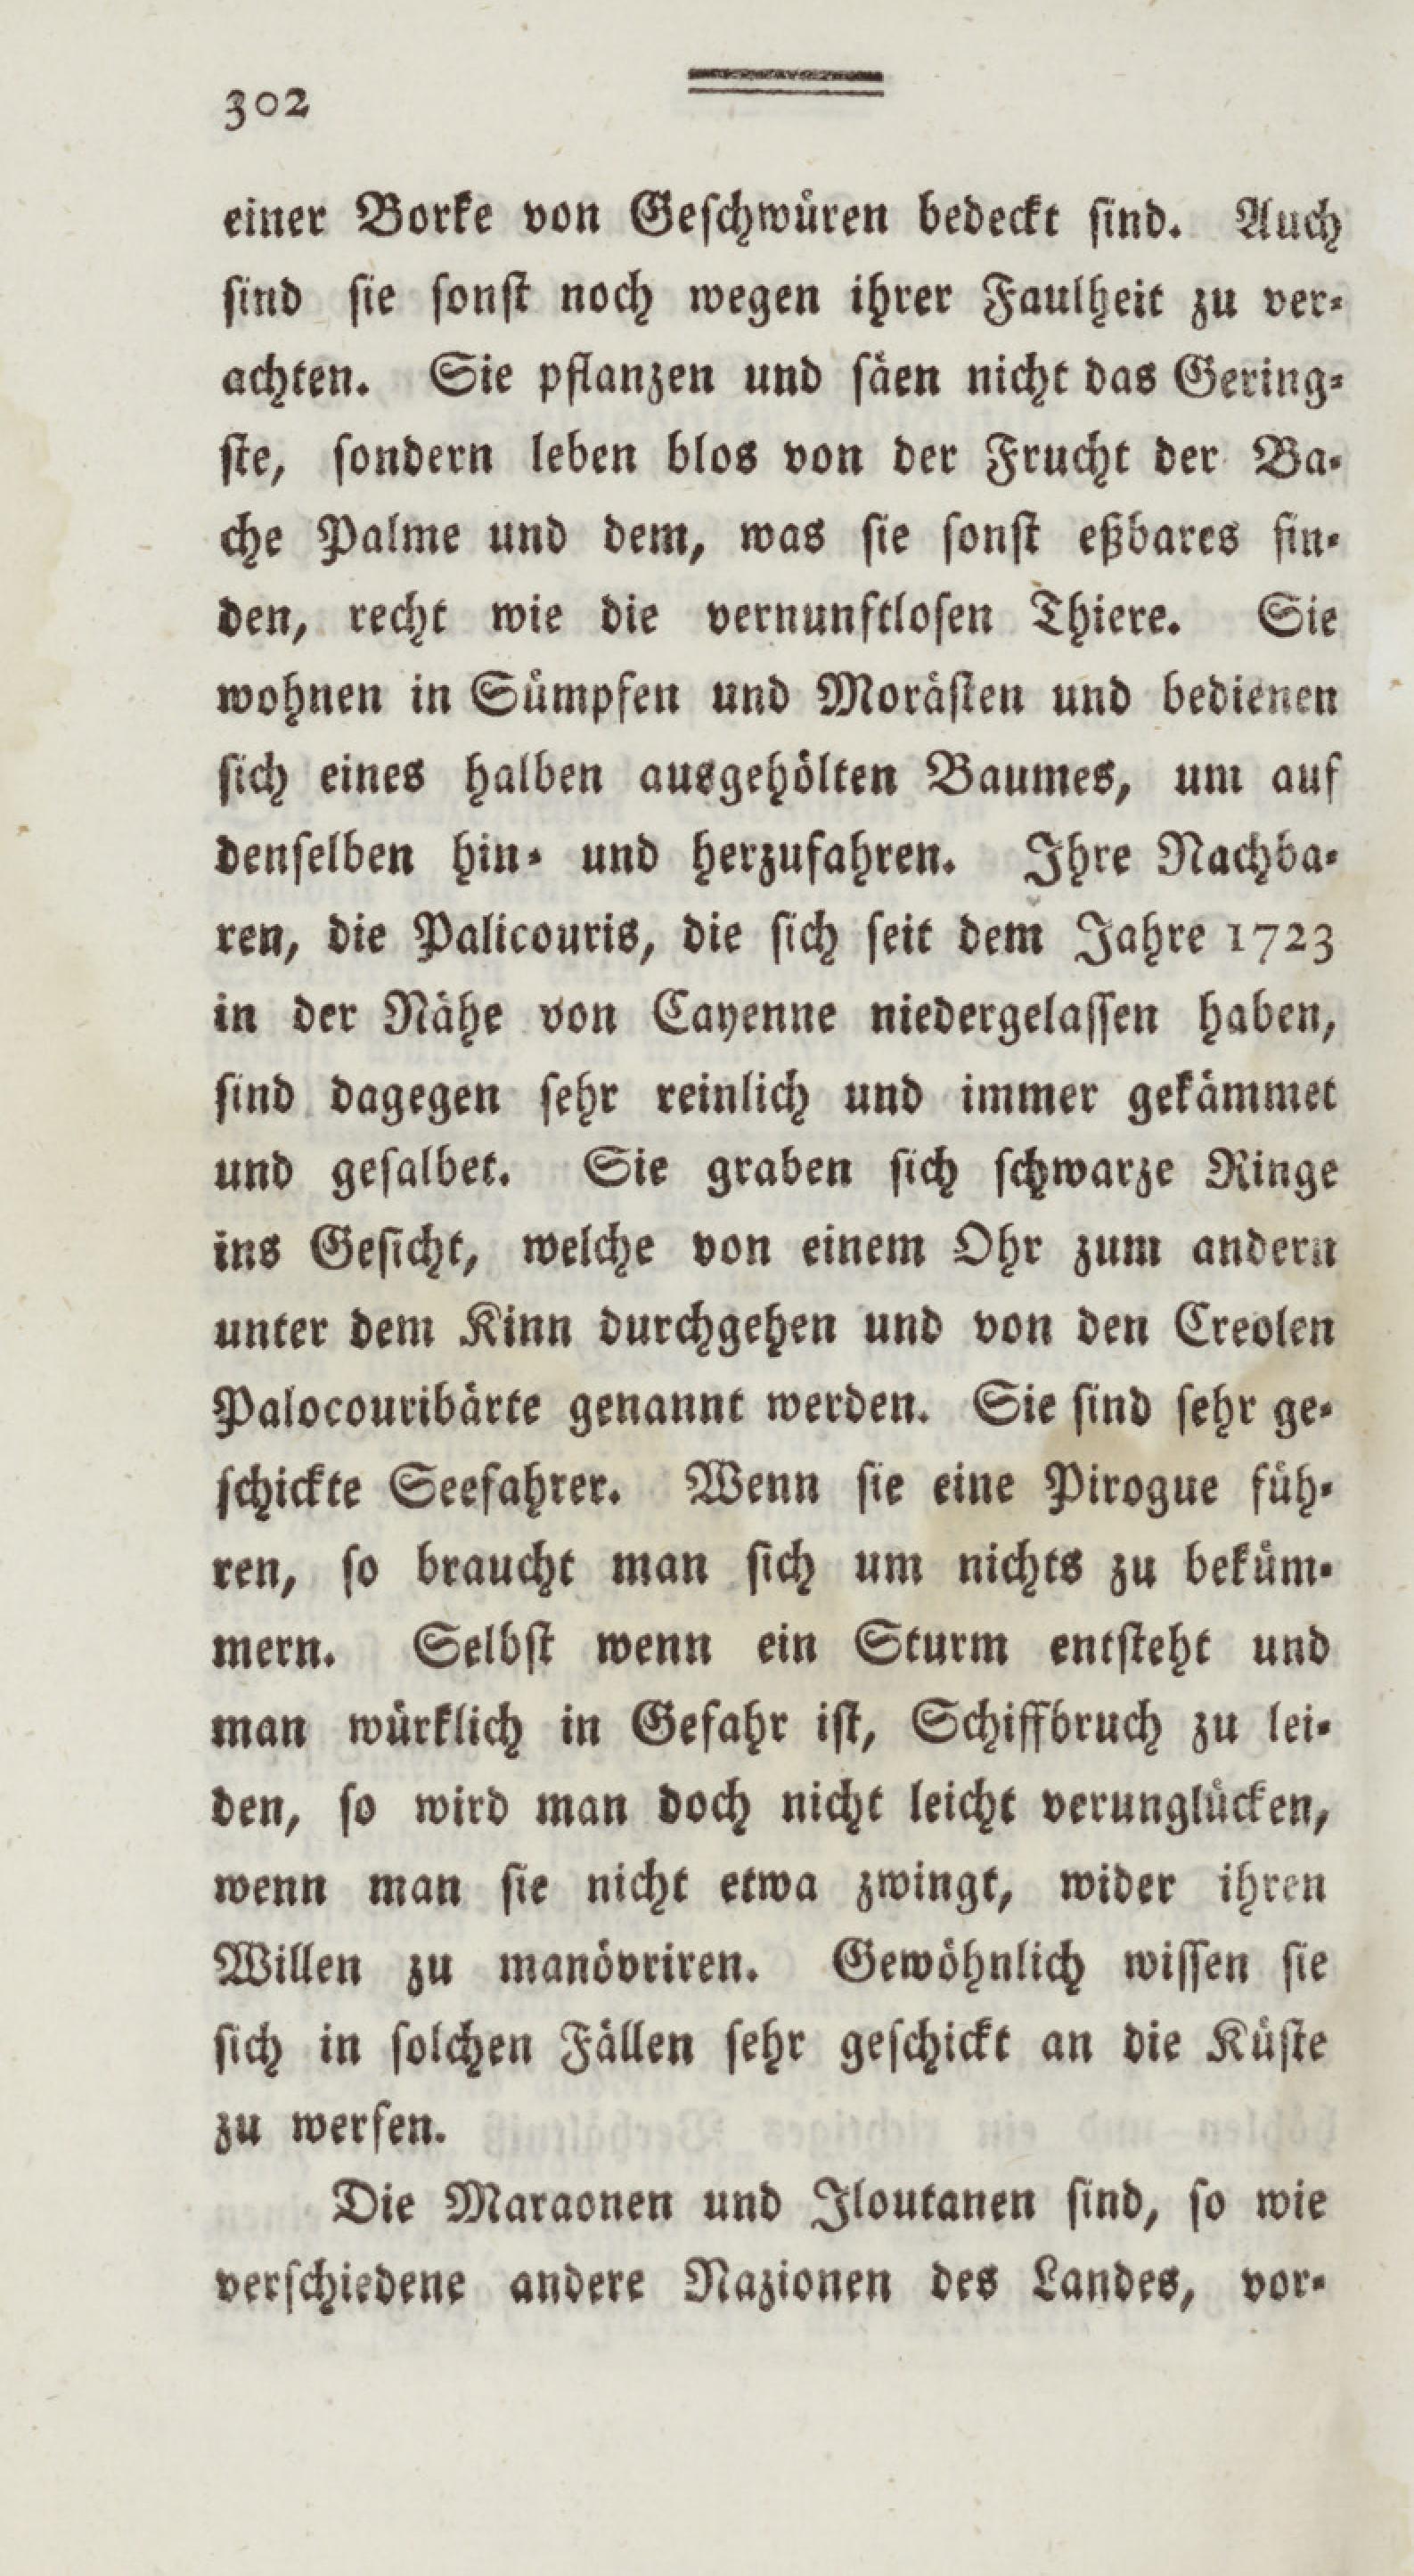 302
einer Borke von Geschwüren bedeckt sind. Auch
sind sie sonst noch wegen ihrer Faulheit zu ver-
achten. Sie pflanzen und säen nicht das Gering-
ste, sondern leben blos von der Frucht der Ba-
che Palme und dem, was sie sonst eßbares fin-
den, recht wie die vernunftlosen Thiere. Sie
wohnen in Sümpfen und Morästen und bedienen
sich eines halben ausgehölten Baumes, um auf
denselben hin- und herzufahren. Ihre Nachba-
ren, die Palicouris, die sich seit dem Jahre 1723
in der Nähe von Cayenne niedergelassen haben,
sind dagegen sehr reinlich und immer gekämmet
und gesalbet. Sie graben sich schwarze Ringe
ins Gesicht, welche von einem Ohr zum andern
unter dem Kinn durchgehen und von den Creolen
Palocouribärte genannt werden. Sie sind sehr ge-
schickte Seefahrer. Wenn sie eine Pirogue füh-
ren, so braucht man sich um nichts zu beküm-
mern. Selbst wenn ein Sturm entsteht und
man würklich in Gefahr ist, Schiffbruch zu lei-
den, so wird man doch nicht leicht verunglücken,
wenn man sie nicht etwa zwingt, wider ihren
Willen zu manövriren. Gewöhnlich wissen sie
sich in solchen Fällen sehr geschickt an die Küste
zu werfen.
Die Maraonen und Iloutanen sind, so wie
verschiedene andere Nazionen des Landes, vor-